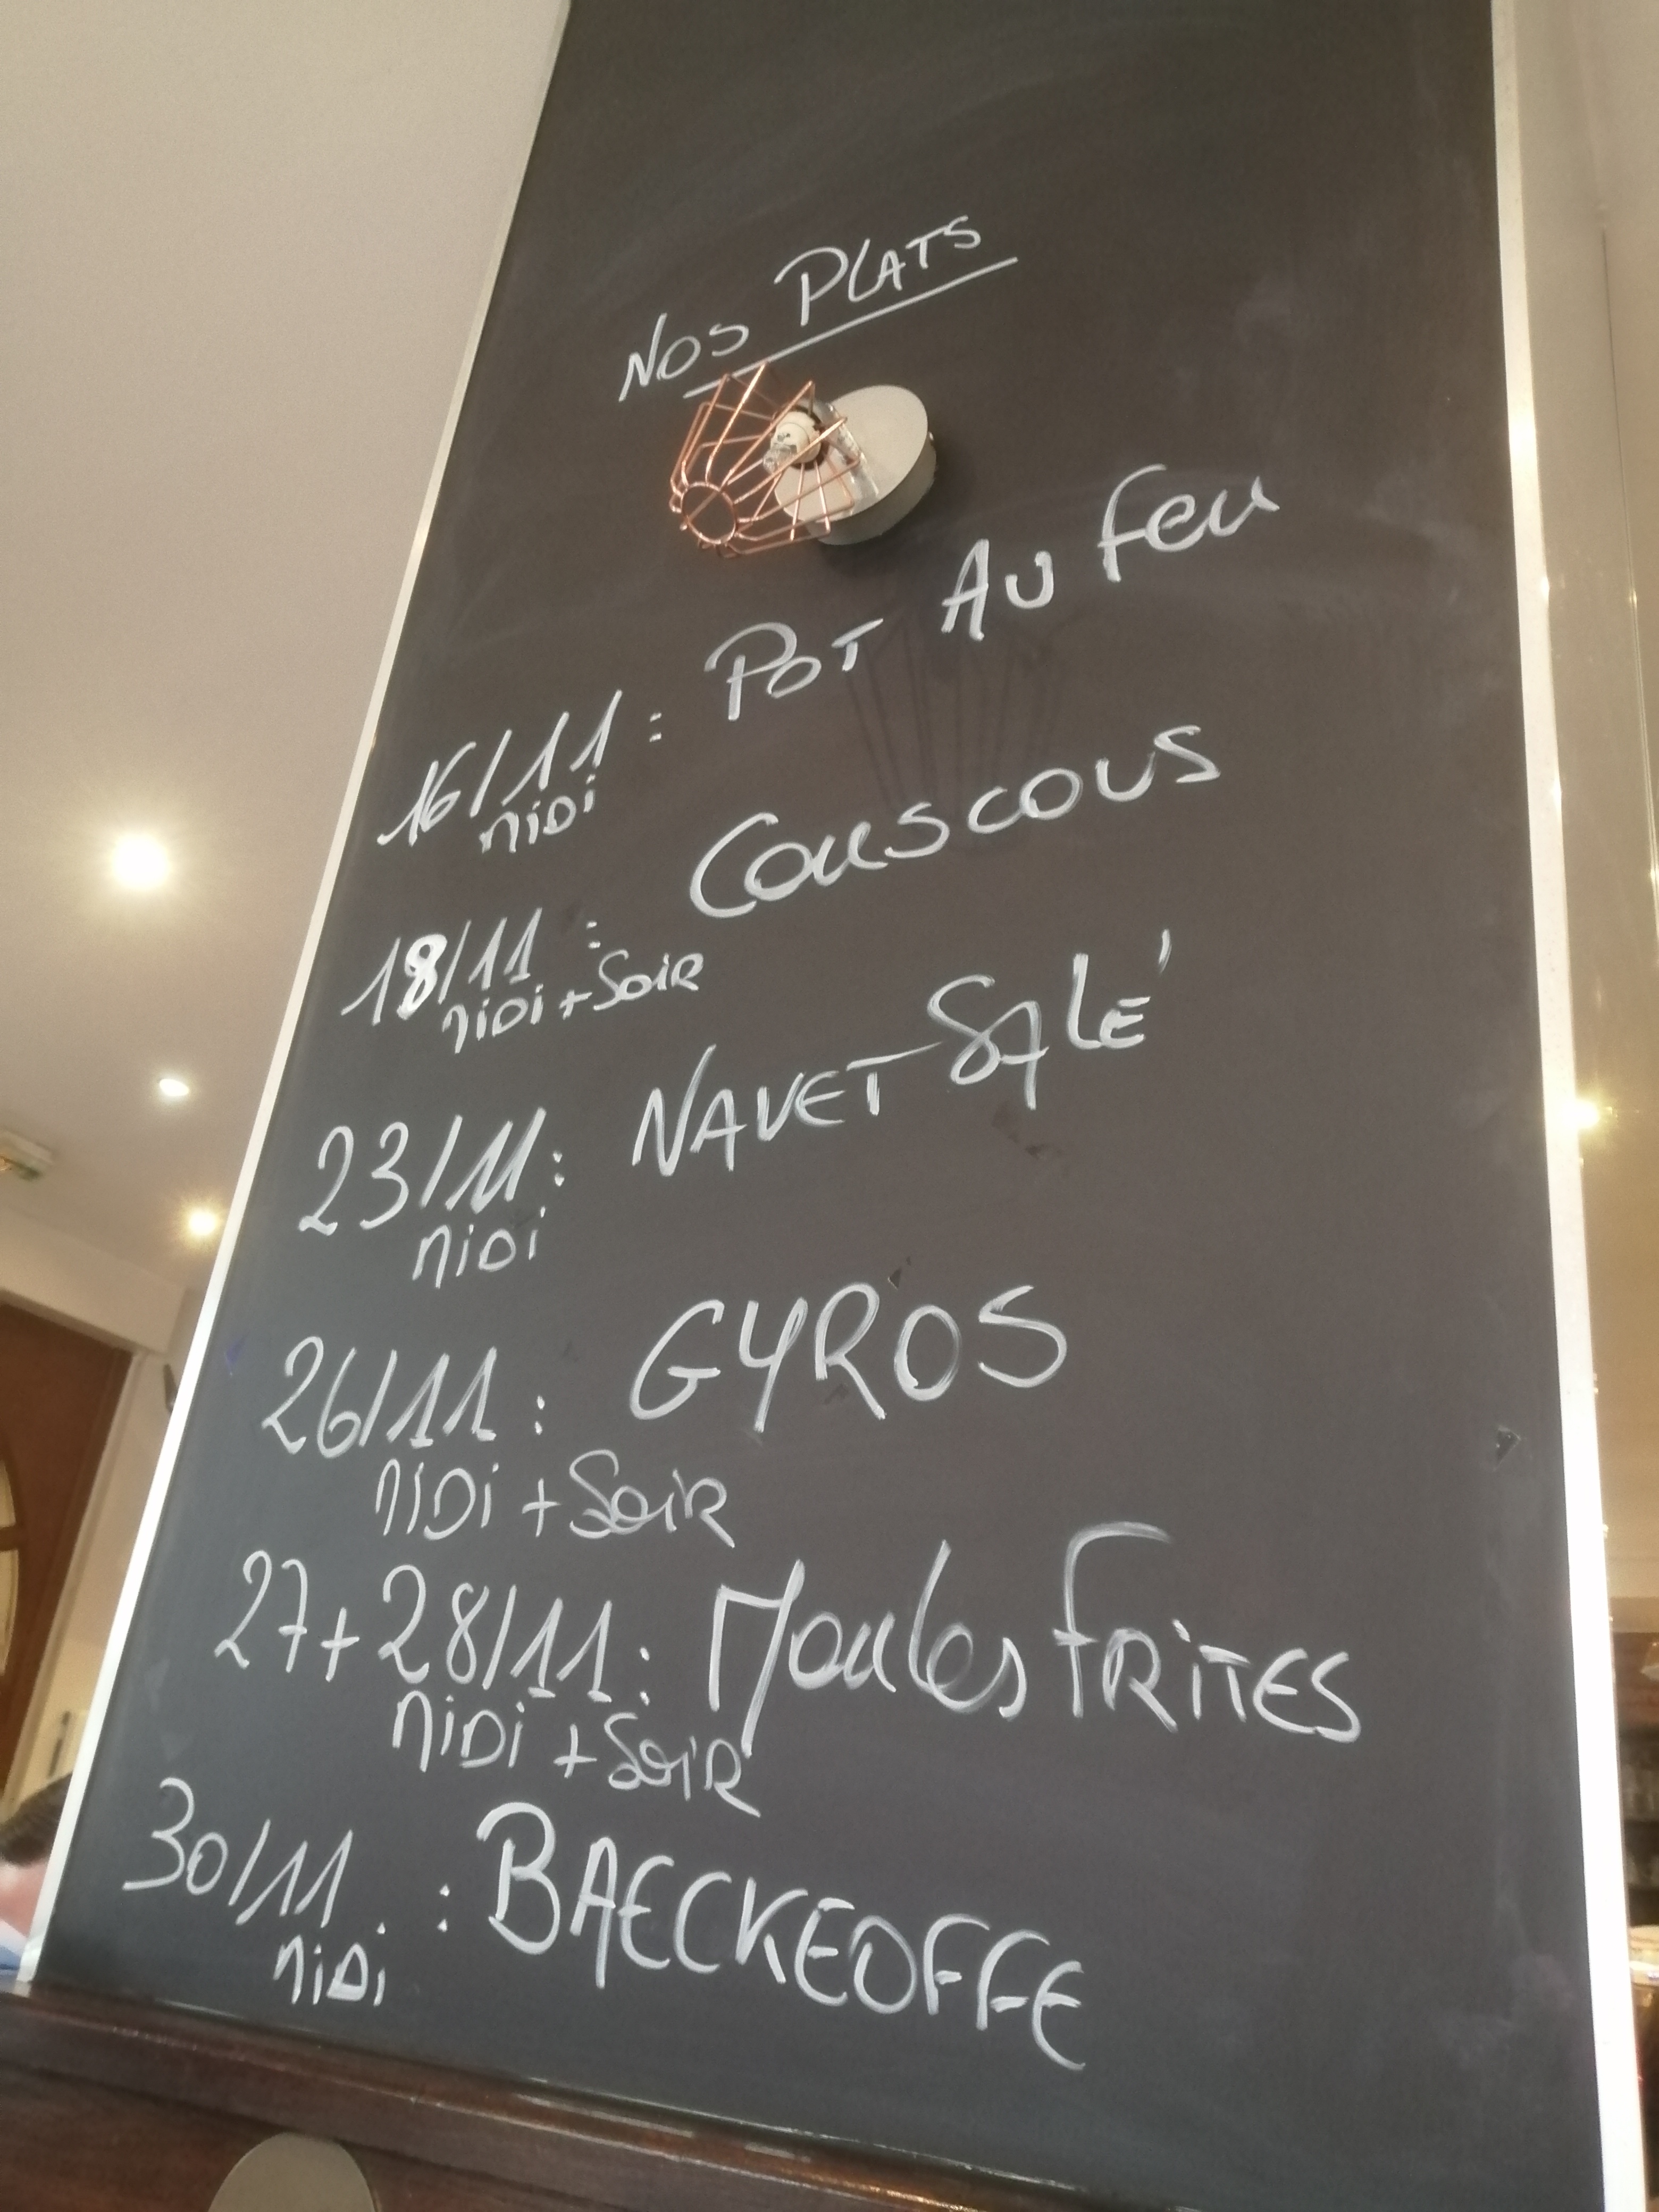 NOS PLATS
16/11 : POT AU feu
MiDi
18/11 : Couscous
MiDi + SoiR
23/11 : NAVET SALÉ
MiDi
26/11 : GYROS
MiDi + SoiR
27 + 28/11 : Moules FRiTES
MiDi + SoiR
30/11 : BAECKEOFFE
MiDi